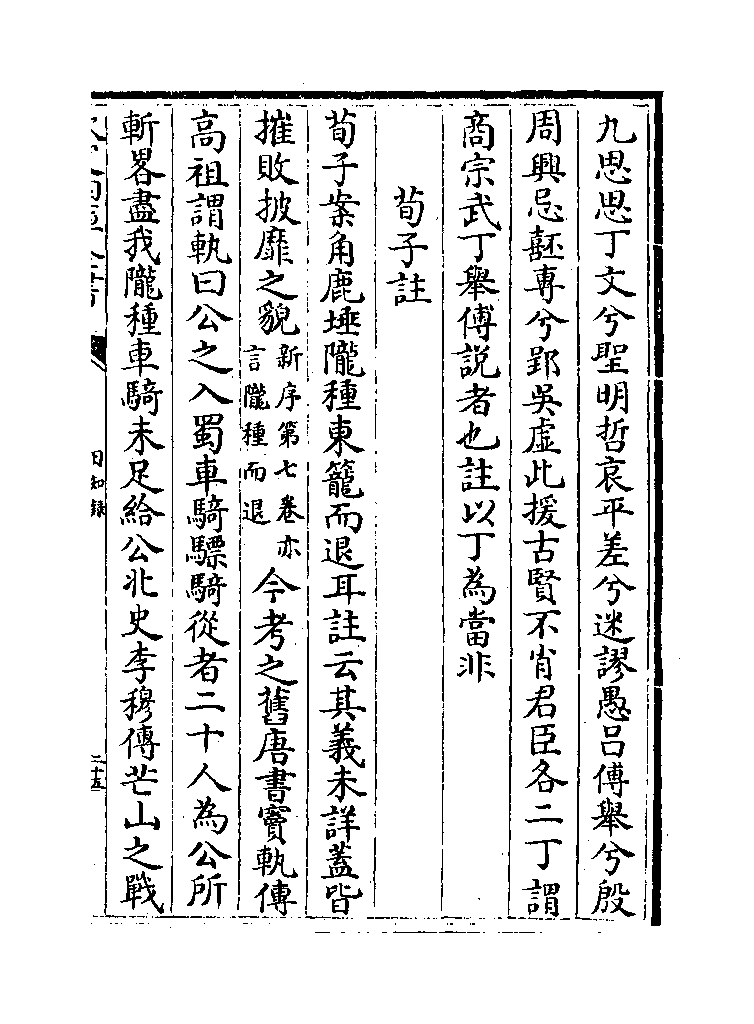 九思思丁文兮聖明哲哀平差兮迷謬愚吕傅舉兮殷
周興忌嚭專兮郢吳虚此援古賢不肖君臣各二丁謂
商宗武丁舉傅説者也註以丁為當非
荀子註
荀子案角鹿埵隴種東籠而退耳註云其義未詳葢皆
摧敗披靡之貌新序第七卷亦言隴種而退今考之舊唐書竇軌傳
高祖謂軌曰公之入蜀車騎驃騎從者二十人為公所
斬畧盡我隴種車騎未足給公北史李穆傳芒山之戰
日知録
二十五